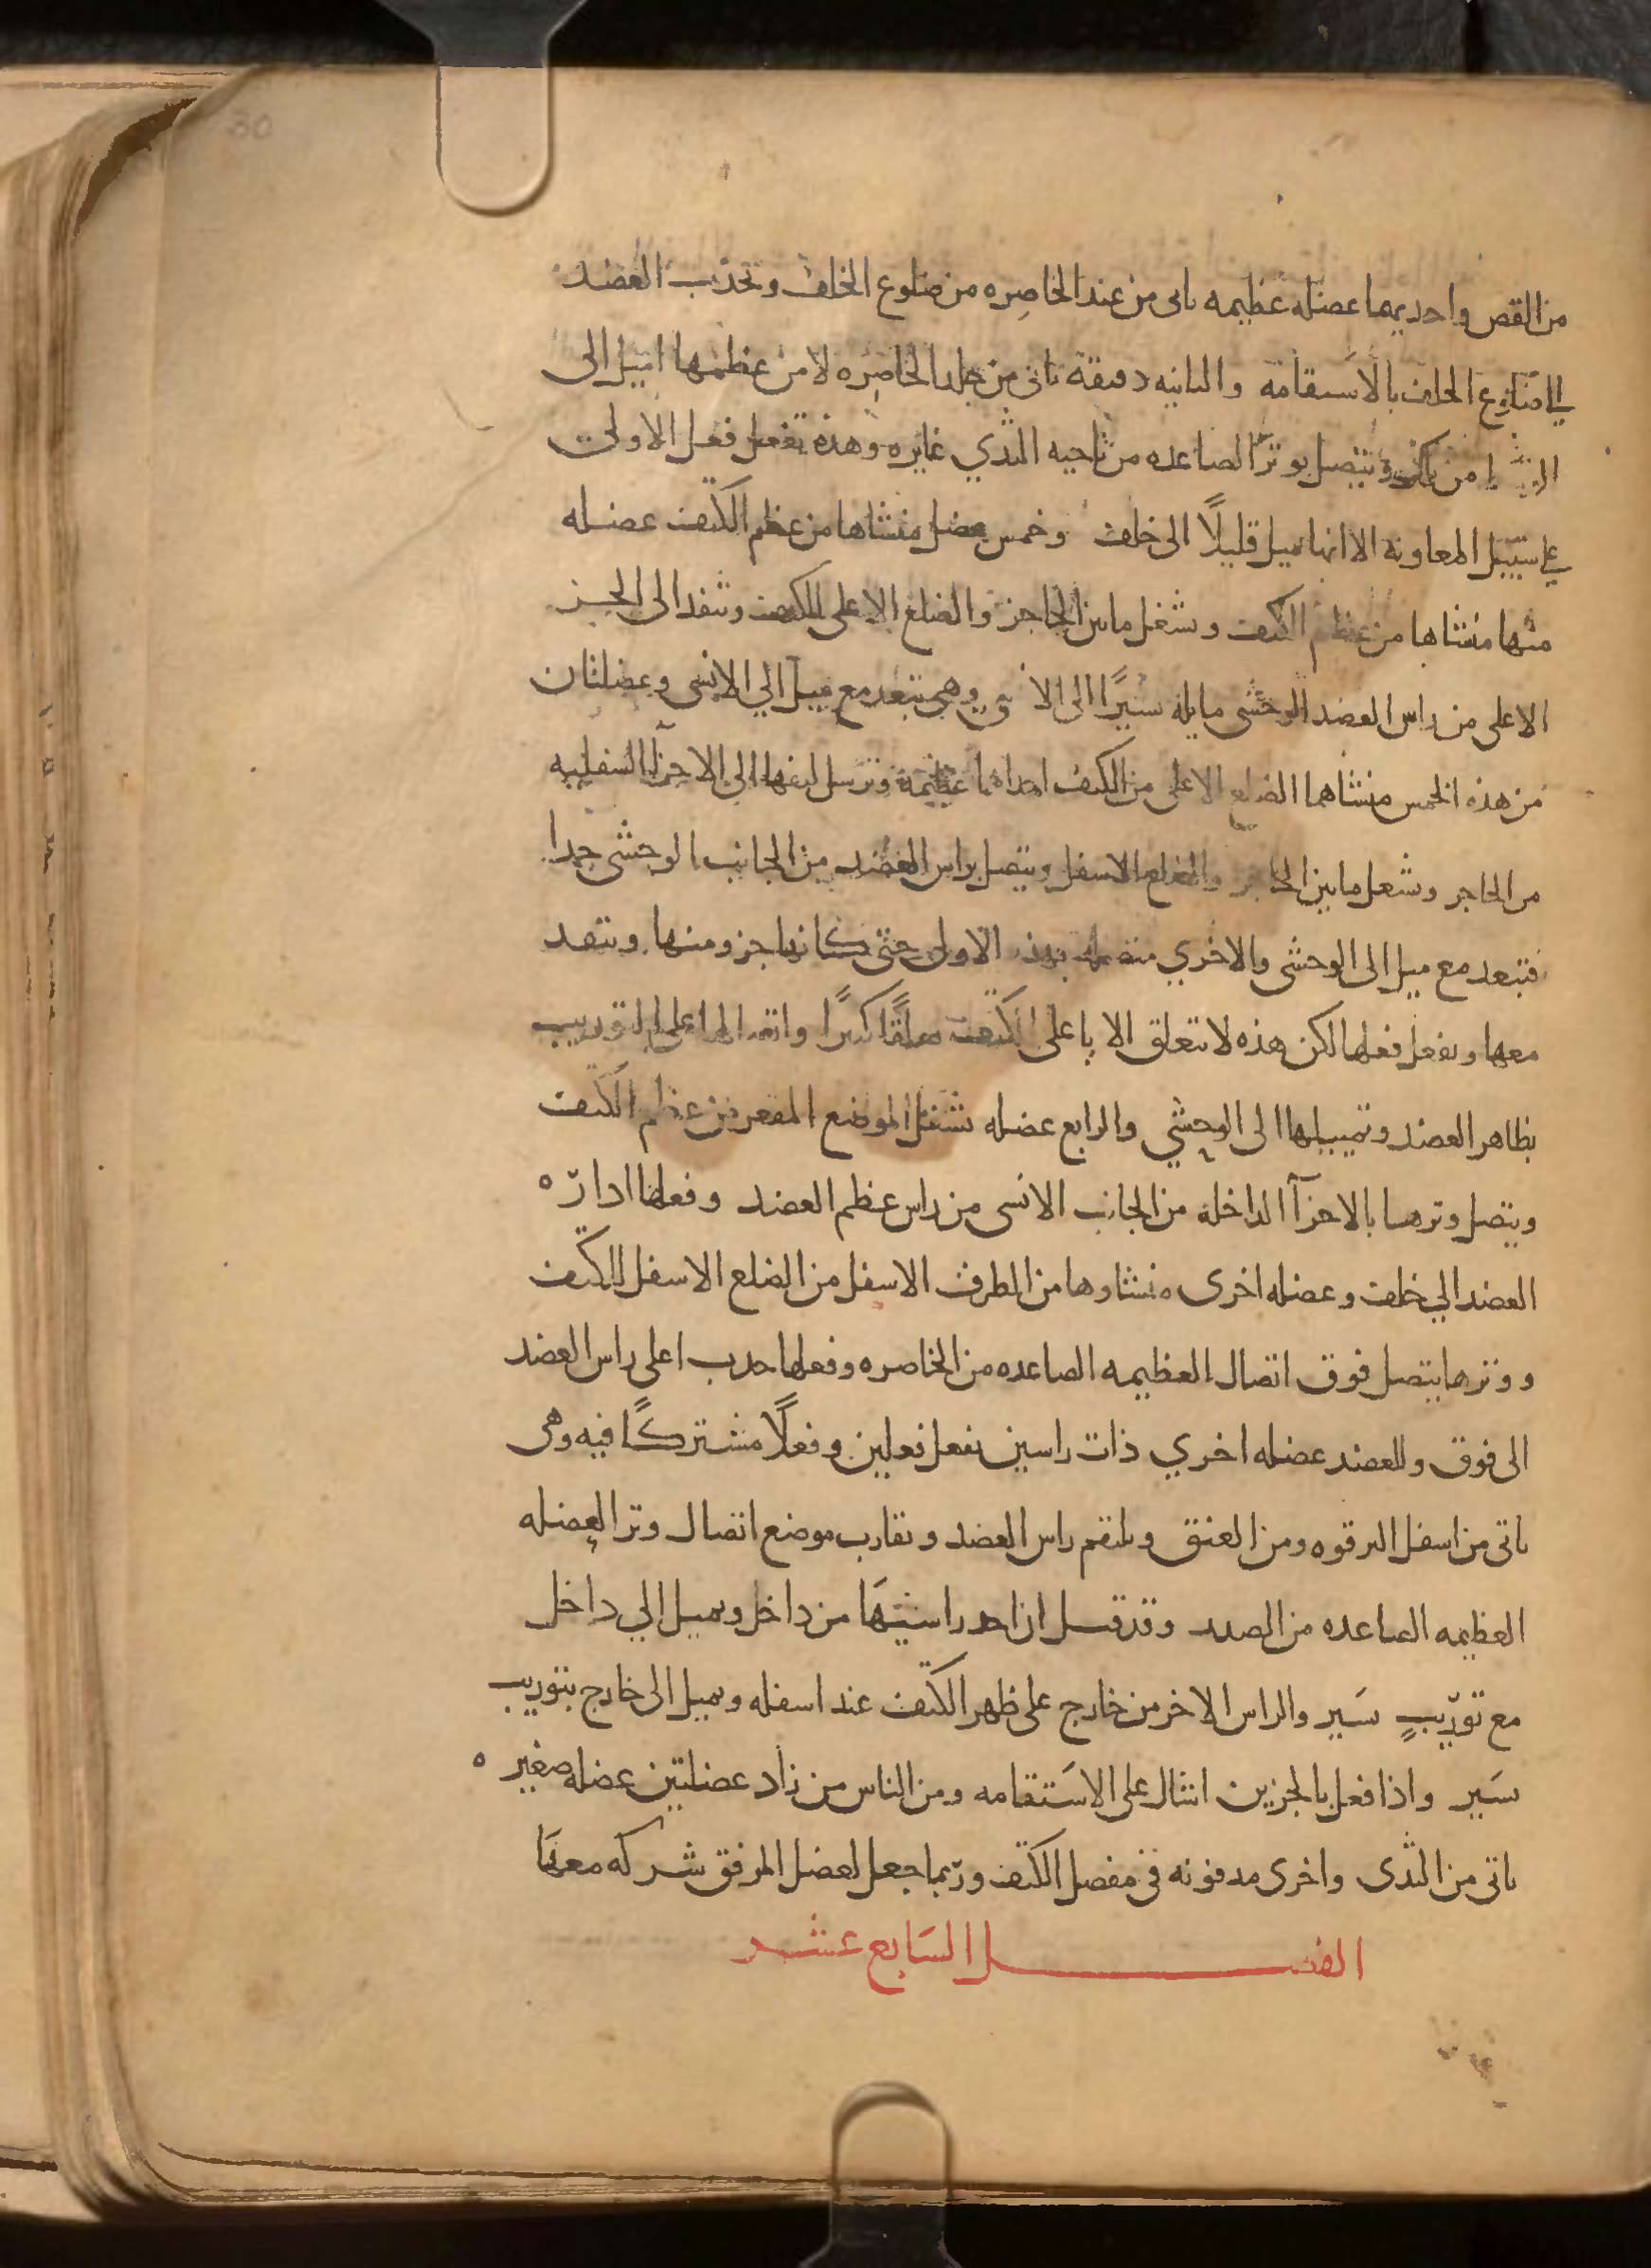 30
من القص واحديهما عضله عظيمه ياتى من عند الخاصِره من ضلوع الخلف وتجذب العضد
الى ضلوع الخلف بالاستقامة والثانيه دقيقة تاتى من جلد الخاصِره لا من عظمها اميل الى
من تتصل بوتر الصاعده من ناحيه الثدي غايره وهذه تفعل فعل الاولى
على سبيل المعاونة الا انها تميل قليلًا الى خلف وخمس عضل منشاها من عظم الكتف عضله
منها منشاها من عظم الكتف وتشغل ما بين الحاجز والضلع الاعلى للكتف وتنفد الى الجز
الاعلى من راس العضد الوحشى مايله يسيرًا الى الانسى وهى تبعد مع ميل الي الانسى وعضلتان
من هذه الخمس منشاهما الضلع الاعلى من الكتف احداهما عظيمة وترسل ليفها الى الاجزآ السفليه
من الحاجز وتشغل ما بين الحاجز والضلع الاسفل وتتصل براس العضد من الجانب الوحشى جدا
فتبعد مع ميل الى الوحشى والاخري متصله بهذه الاولى حتى كانها جزو منها وتنفد
معها وتفعل فعلها لكن هذه لا تتعلق الا باعلى الكتف تعلقًا كثيرًا واتصالها على التوريب
بظاهر العضد وتميلها الى الوحشي والرابع عضله تشغل الموضع المقعر من عظم الكتف
ويتصل وترها بالاجزآ الداخله من الجانب الانسى من راس عظم العضد وفعلها ادارّه
العضد الي خلف وعضله اخرى منشاوها من الطرف الاسفل من الضلع الاسفل للكتف
ووترها يتصل فوق اتصال العظيمه الصاعده من الخاصره وفعلها جدب اعلى راس العضد
الى فوق وللعضد عضله اخري ذات راسين تفعل فعلين وفعلًا مشتركًا فيه وهى
تاتى من اسفل الترقوه ومن العنق وتلتقم راس العضد وتقارب موضع اتصال وتر العضله
العظيمه الصاعده من الصدر وقد قيل ان احد راسيهَا من داخل ويميل الي داخل
مع تورّيبٍ يسَير والراس الاخر من خارج على ظهر الكتف عند اسفله ويميل الى خارج بتوريب
يسَير واذا فعل بالجزين اشال على الاسَتقامه ومن الناس من زاد عضلتين عضله صغيره
تاتى من الثدى واخرى مدفونه فى مفصل الكتف وربّما جعل لعضل المرفق شركه معهَا
الفصل السَابع عشر